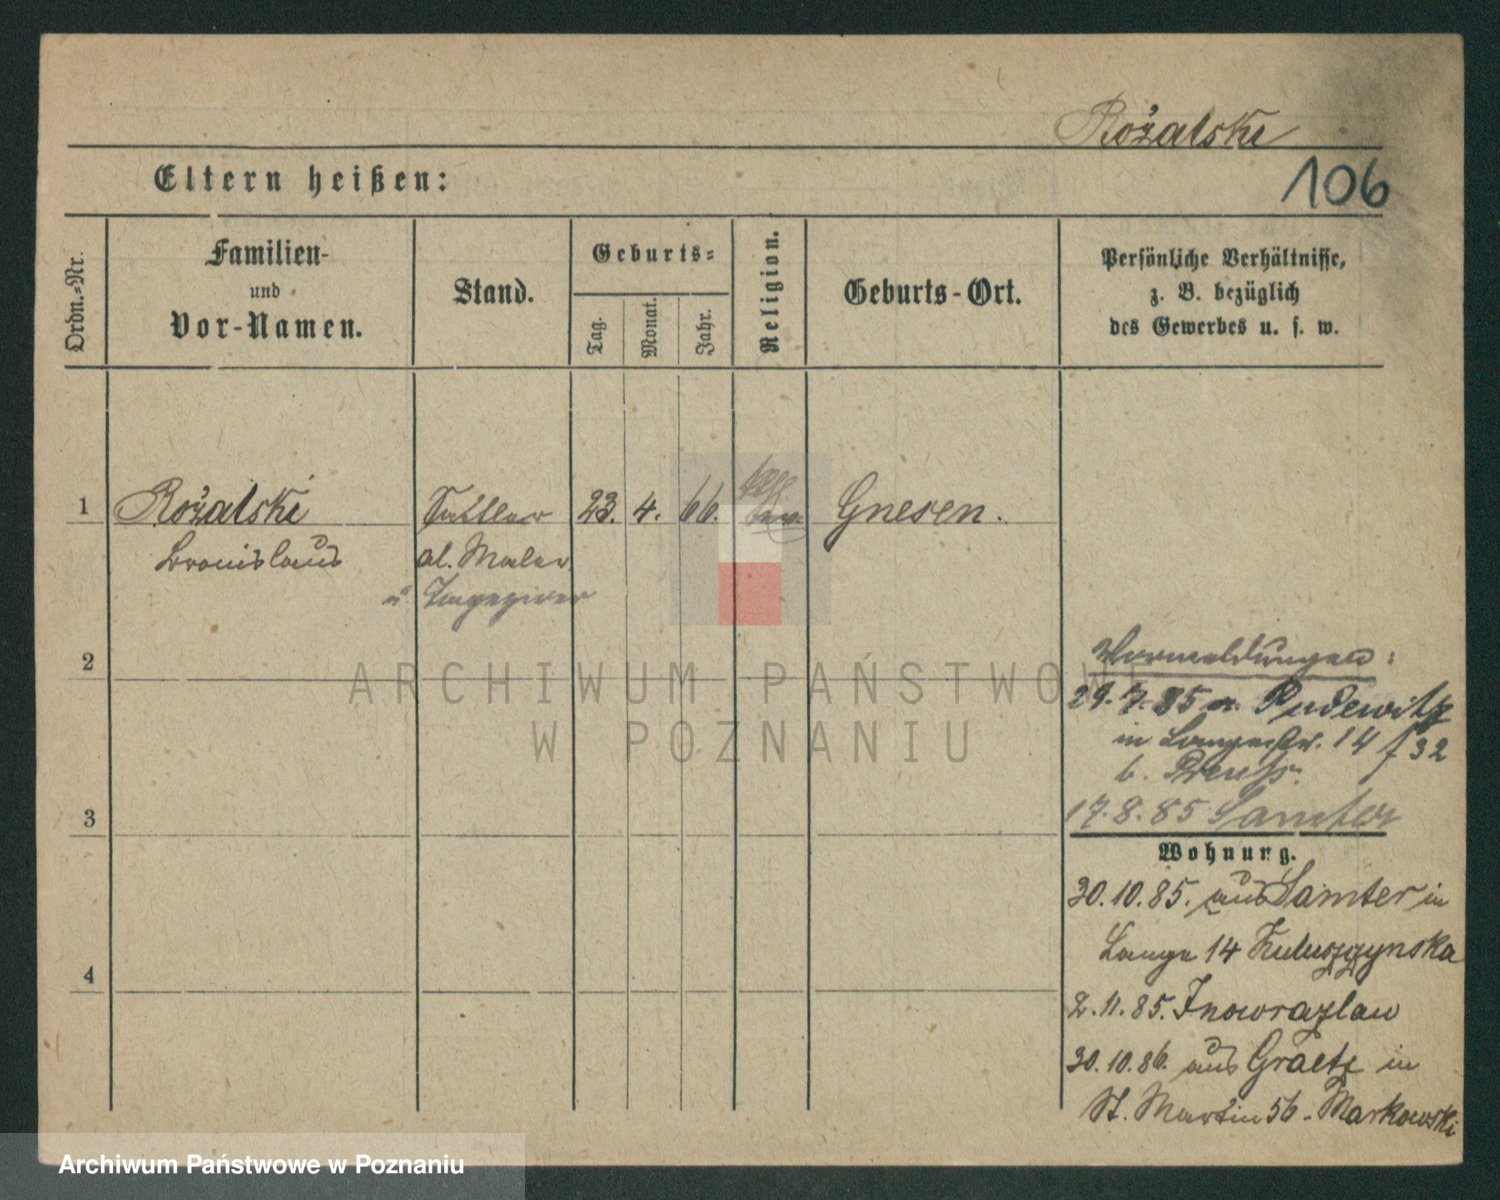 Rożalski
Eltern heißen:
106
Ordn.-Nr.
Familien-
und
Vor-Namen.
Stand.
Geburts-
Tag.
Monat.
Jahr.
Religion.
Geburts-Ort.
Persönliche Verhältnisse,
z. B. bezüglich
des Gewerbes u. s. w.
1 Rożalski Sattler 23. 4. 66. Gnesen.
Bronislaus al. Maler
u Tapezirer
2
Vormeldungen:
29.7.85 a. Pudewitz
in Langestr. 14 f 32
b. Preuß.
17.8.85 Samter
3
Wohnung.
30.10.85. aus Samter in
Lange 14
4
2.11.85. Inowrazlaw
30.10.86. aus Graetz in
St. Martin 56. Markowski
ARCHIWUM PAŃSTWOWE
W POZNANIU
Archiwum Państwowe w Poznaniu